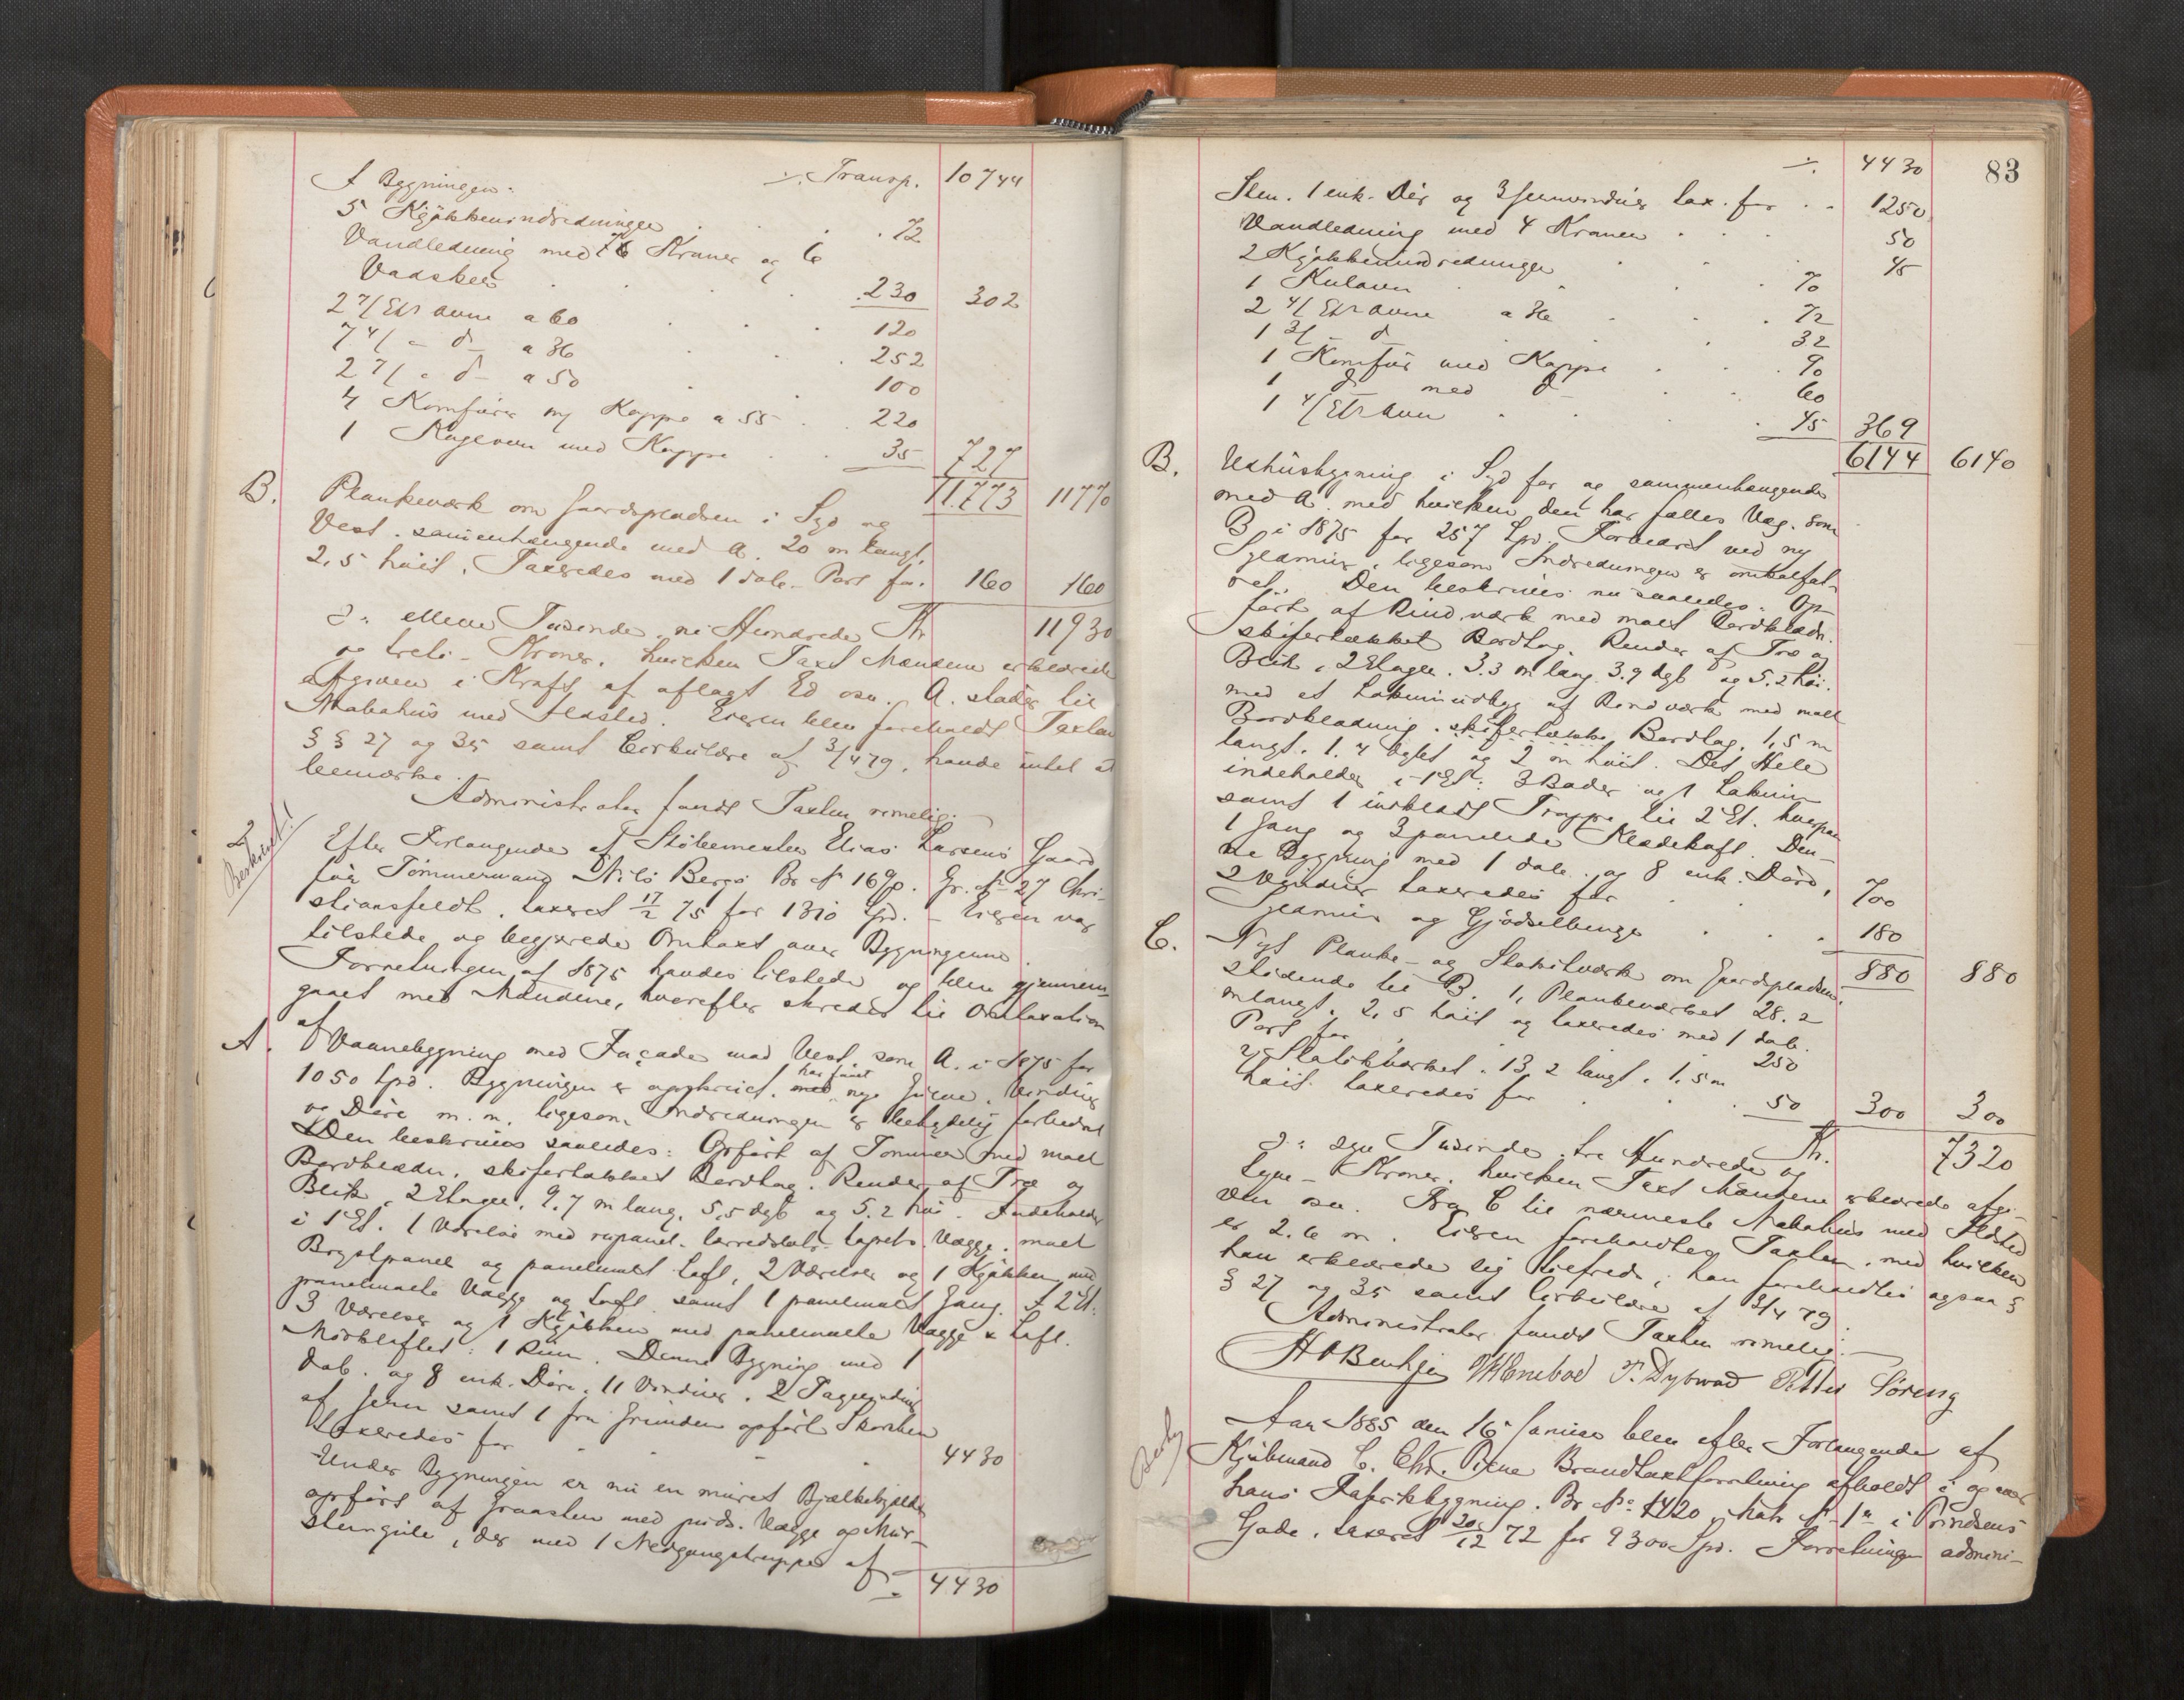 ·/. Transp. 10744
I Bygningen:
5 Kjøkkenindredninger . . . 72
Vandledning med 6 Kraner og 6
Vadsker . . . 230 302
2 7/Et Ovne a 60 . . . 120
7 4/ - d - a 36 . . . 252
2 7/ - d - a 50 . . . 100
4 Komfurer m/ Kappe a 55 . . 220
1 Kogeovn med Kappe . . 35 727
11.773 11770
B. Plankeværk om Gaardspladsen i Syd og
Vest, sammenhængende med A. 20 m langt,
2,5 høit. Taxeredes med 1 dob. Port for. 160 160
Kr 11930
D: elleve Tusinde, ni Hundrede
og treti - Kroner, hvilken Taxt Mændene erklærede
afgiven i Kraft af aflagt Ed osv. A. støder til
Nabohus med Ildsted. Eieren blev foreholdt Taxtlov
§ § 27 og 35 samt Cirkulære af 3/4 79, havde intet at
bemærke.
Administrator fandt Taxten rimelig.
2
Beskrivet!
Efter Forlangende af Støbemester Elias Larsens Gaard
før Tømmermand Nils Bergs Br No 169p. Gr. No 27 Chri-
stiansfeldt, taxeret 17/2 75 for 1310 Spd. - Eieren var
tilstede og begjærede Omtaxt over Bygningerne.
Forretningen af 1875 havdes tilstede og blev gjennem-
gaaet med Mændene, hvorefter skredes til Omtaxation
af
A. Vaanebygning med Façade mod Vest, som A. i 1875 for
1050 Spd. Bygningen er opskrevet, med har faaet nye Gulve, Vinduer
og Døre m. m. ligesom Indredningen er betydelig forbedret
Den beskrives saaledes: Opført af Tømmer med malt
Bordklædn. skifertækket Bordtag. Render af Træ og
Blik, 2 Etager, 9,7 m lang, 5,5 dyb og 5.2 høi. Indeholder
i 1 Et. 1 Værelse med rupanel. lærredsbetr. tapets. Vægge, malt
Brystpanel og panelmalt Loft, 2 Værelser og 1 Kjøkken med
panelmalte Vægge og Loft samt 1 panelmalt Gang. I 2 Et:
3 Værelser og 1 Kjøkken med panelmalte Vægge & Loft.
Mørkeloftet: 1 Rum. Denne Bygning med 1
dob. og 8 enk. Døre, 11 Vinduer, 2 Tagvinduer
af Jern samt 1 fra Grunden opført Skorsten
taxeredes for . . . 4430
Under Bygningen er nu en muret Bjælkekjælder
opført af Graasten med puds. Vægge og Mur-
stensgulv, der med 1 Nedgangstrappe af
·/. 4430
83
·/. 4430
Sten. 1 enk. Dør og 3 Jernvinduer tax. for . . 1250
Vandledning med 4 Kraner . . . 50
2 Kjøkkenindredninger . . . 45
1 Kulovn . . . 70
2 4/Et Ovne a 36 . . . 72
1 3/ - d - . . . 32
1 Komfur med Kappe . . . 90
1 d med d . . . 60
1 4/Et Ovn . . . 45 369
6144 6140
B. Udhusbygning i Syd for og sammenhængende
med A. med hvilken den har fælles Væg. Som
B i 1875 for 257 Spd. Forbedret ved ny
Gjemur, ligesom Indredningen er omkalfat-
ret. Den beskrives nu saaledes: Op-
ført af Bindværk med malt Bordklædn.
skifertækket Bordtag. Render af Træ og
Blik, 2 Etager. 3.3 m lang. 3.9 dyb og 5.2 høi.
med et Latrinudbyg af Bindværk med malt
Bordklædning, skifertækket Bordtag, 1,5 m
langt. 1.4 dybt og 2 m høit. Det Hele
indeholder i 1 Et: 3 Boder og 1 Latrin
samt 1 indklædt Trappe til 2 Et. hvorpaa
1 Gang og 3 panelede Klædeloft. Den-
ne Bygning med 1 dob. og 8 enk. Døre,
2 Vinduer taxeredes for . . 700
Gjemur og Gjødselbinge . . . 180
880 880
C. Nyt Planke- og Stakitværk om Gaardspladsen,
stødende til B. 1, Plankeværket 28.2
m langt. 2,5 høit og taxeredes med 1 dob.
Port for . . . 250
2, Stakitværket. 13,2 langt. 1.5 m
høit, taxeredes for . . . 50 300 300
Kr. 7320
D: syv Tusinde, tre Hundrede og
tyve - Kroner, hvilken Taxt Mændene erklærede afgi-
ven osv. Fra C til nærmeste Nabohus med Ildsted
er 2.6 m. Eieren foreholdtes Taxten, med hvilken
han erklærede sig tilfreds; han foreholdtes ogsaa §
§ 27 og 35 samt Cirkulære af 3/4 79.
Administrator fandt Taxten rimelig. -
T. Dybwad Petter Söreng
Aar 1885 den 16 Januar blev efter Forlangende af
Kjøbmand C. Chr. Brandtaxtforretning afholdt i og over
hans Fabrikbygning. Br No 1420, Matr No 1a i Prindsens
Gade, taxeret 20/12 72 for 9300 Spd. Forretningen admini-